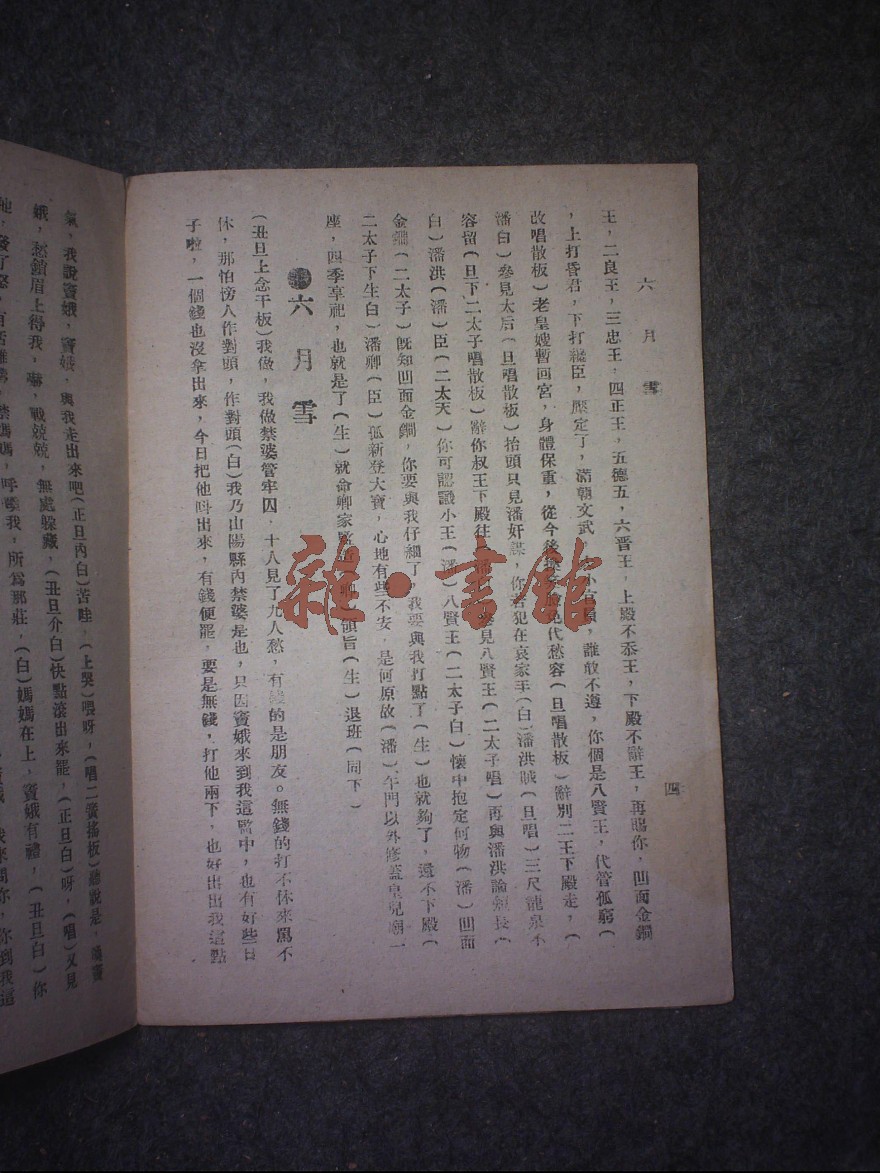 六月雪
四
王，二良王，三忠王，四正王，五德五，六晋王，上殿不忝王，下殿不辭王，再賜你，凹面金鐧
，上打昏君，下打讒臣，壓定了，滿朝文武 小官員，誰敢不遵，你個是八賢王，代管孤窮（
改唱散板）老皇嫂暫回宮，身體保重，從今後 代愁容（旦唱散板）辭別二王下殿走，（
潘白）參見太后（旦唱散板）抬頭只見潘奸謀，你若犯在哀家手（白）潘洪喊（旦唱）三尺龍泉不
容留（旦下二太子唱散板）辭你叔王下殿往（潘白）參見八賢王（二太子唱）再與潘洪論短長（
白）潘洪（潘）臣（二太天）你可認識小王（潘）八賢王（二太子白）懷中抱定何物（潘）凹面
金鐧（二太子）旣知凹面金鐧，你要與我仔細了，我要與我打點了（生）也就夠了，還不下殿（
二太子下生白）潘卿（臣）孤新登大寶，心地有些不安，是何原故（潘）午門以外修蓋皇兒廟一
座，四季享祀，也就是了（生）就命卿家監造 領旨（生）退班（同下）
六月雪
（丑旦上念干板）我做，我做禁婆管牢囚，十人見了九人愁，有錢的是朋友。無錢的打不休來罵不
休，那怕傍人作對頭，作對頭（白）我乃山陽縣內禁婆是也，只因竇娥來到我這監中，也有好些日
子啦，一個錢也沒拿出來，今日把他叫出來，有錢便罷，要是無錢，打他兩下，也好出出我這點
氣，我說竇娥，竇娥，與我走出來吧（正旦內白）苦哇，（上哭）喂呀，（唱二簧搖板）聽說是，喚竇
娥，愁鎖眉上得我，嚇，戰兢兢，無處躲藏，（丑旦介白）快點滾出來罷，（正旦白）呀，（唱）又見
禁媽媽，呼喚我，所爲那莊，（白）媽媽在上，竇娥有禮，（丑旦白）你
我來問你，你到我這
雜·書館